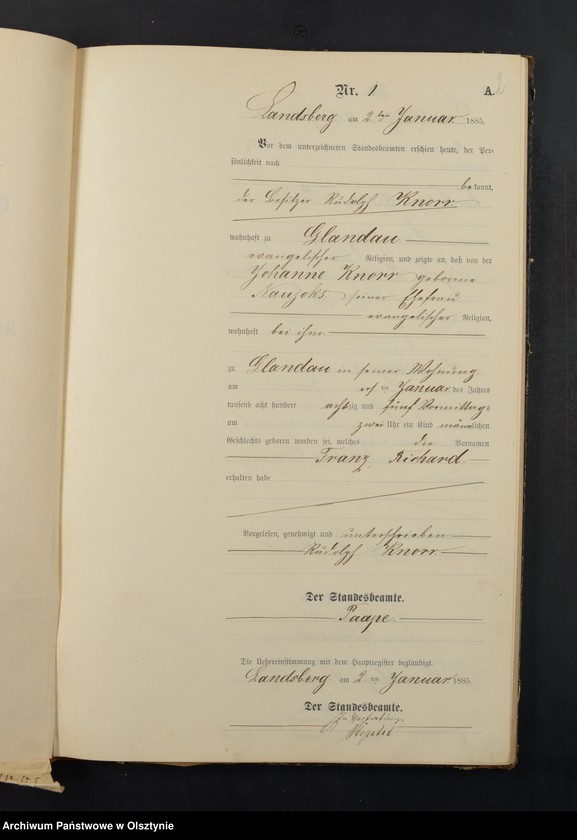 Nr. 1 A. 2
Landsberg am 2 ten Januar 1885.
Vor dem unterzeichneten Standesbeamten erschien heute, der Per-
sönlichkeit nach
bekannt,
der Besitzer Rudolph Knorr
wohnhaft zu Glandau
evangelischer Religion, und zeigte an, daß von der
Johanne Knorr geborene
Naujoks seiner Ehefrau
evangelischer Religion,
wohnhaft bei ihm
zu Glandau in seiner Wohnung
am ersten Januar des Jahres
tausend acht hundert achtzig und fünf Vormittags
um zwei Uhr ein Kind männlichen
Geschlechts geboren worden sei, welches die Vornamen
Franz Richard
erhalten habe
Vorgelesen, genehmigt und unterschrieben
Rudolph Knorr
Der Standesbeamte.
Paape.
Die Uebereinstimmung mit dem Hauptregister beglaubigt.
Landsberg am 2 ten Januar 1885.
Der Standesbeamte.
In Vertretung
Archiwum Państwowe w Olsztynie